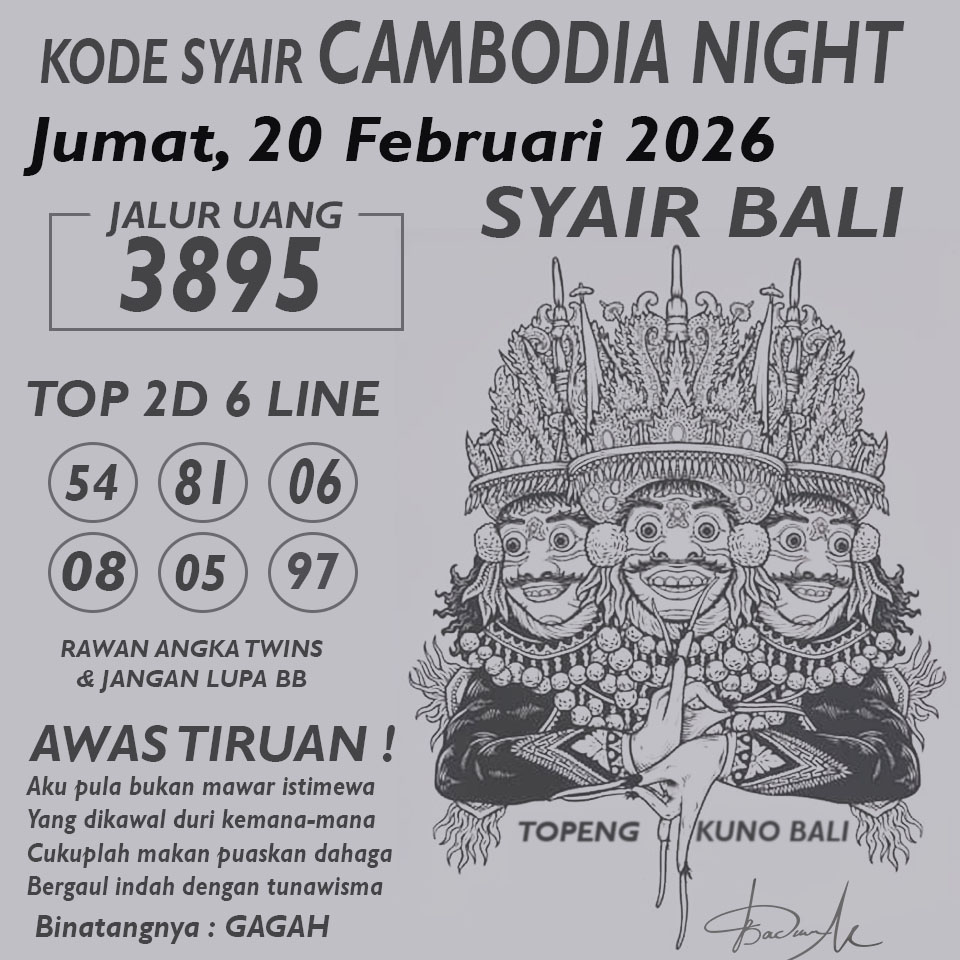 KODE SYAIR CAMBODIA NIGHT
Jumat, 20 Februari 2026
SYAIR BALI
JALUR UANG
3895
TOP 2D 6 LINE
54 81 06
08 05 97
RAWAN ANGKA TWINS
& JANGAN LUPA BB
AWAS TIRUAN !
Aku pula bukan mawar istimewa
Yang dikawal duri kemana-mana
Cukuplah makan puaskan dahaga
Bergaul indah dengan tunawisma
Binatangnya : GAGAH
TOPENG KUNO BALI